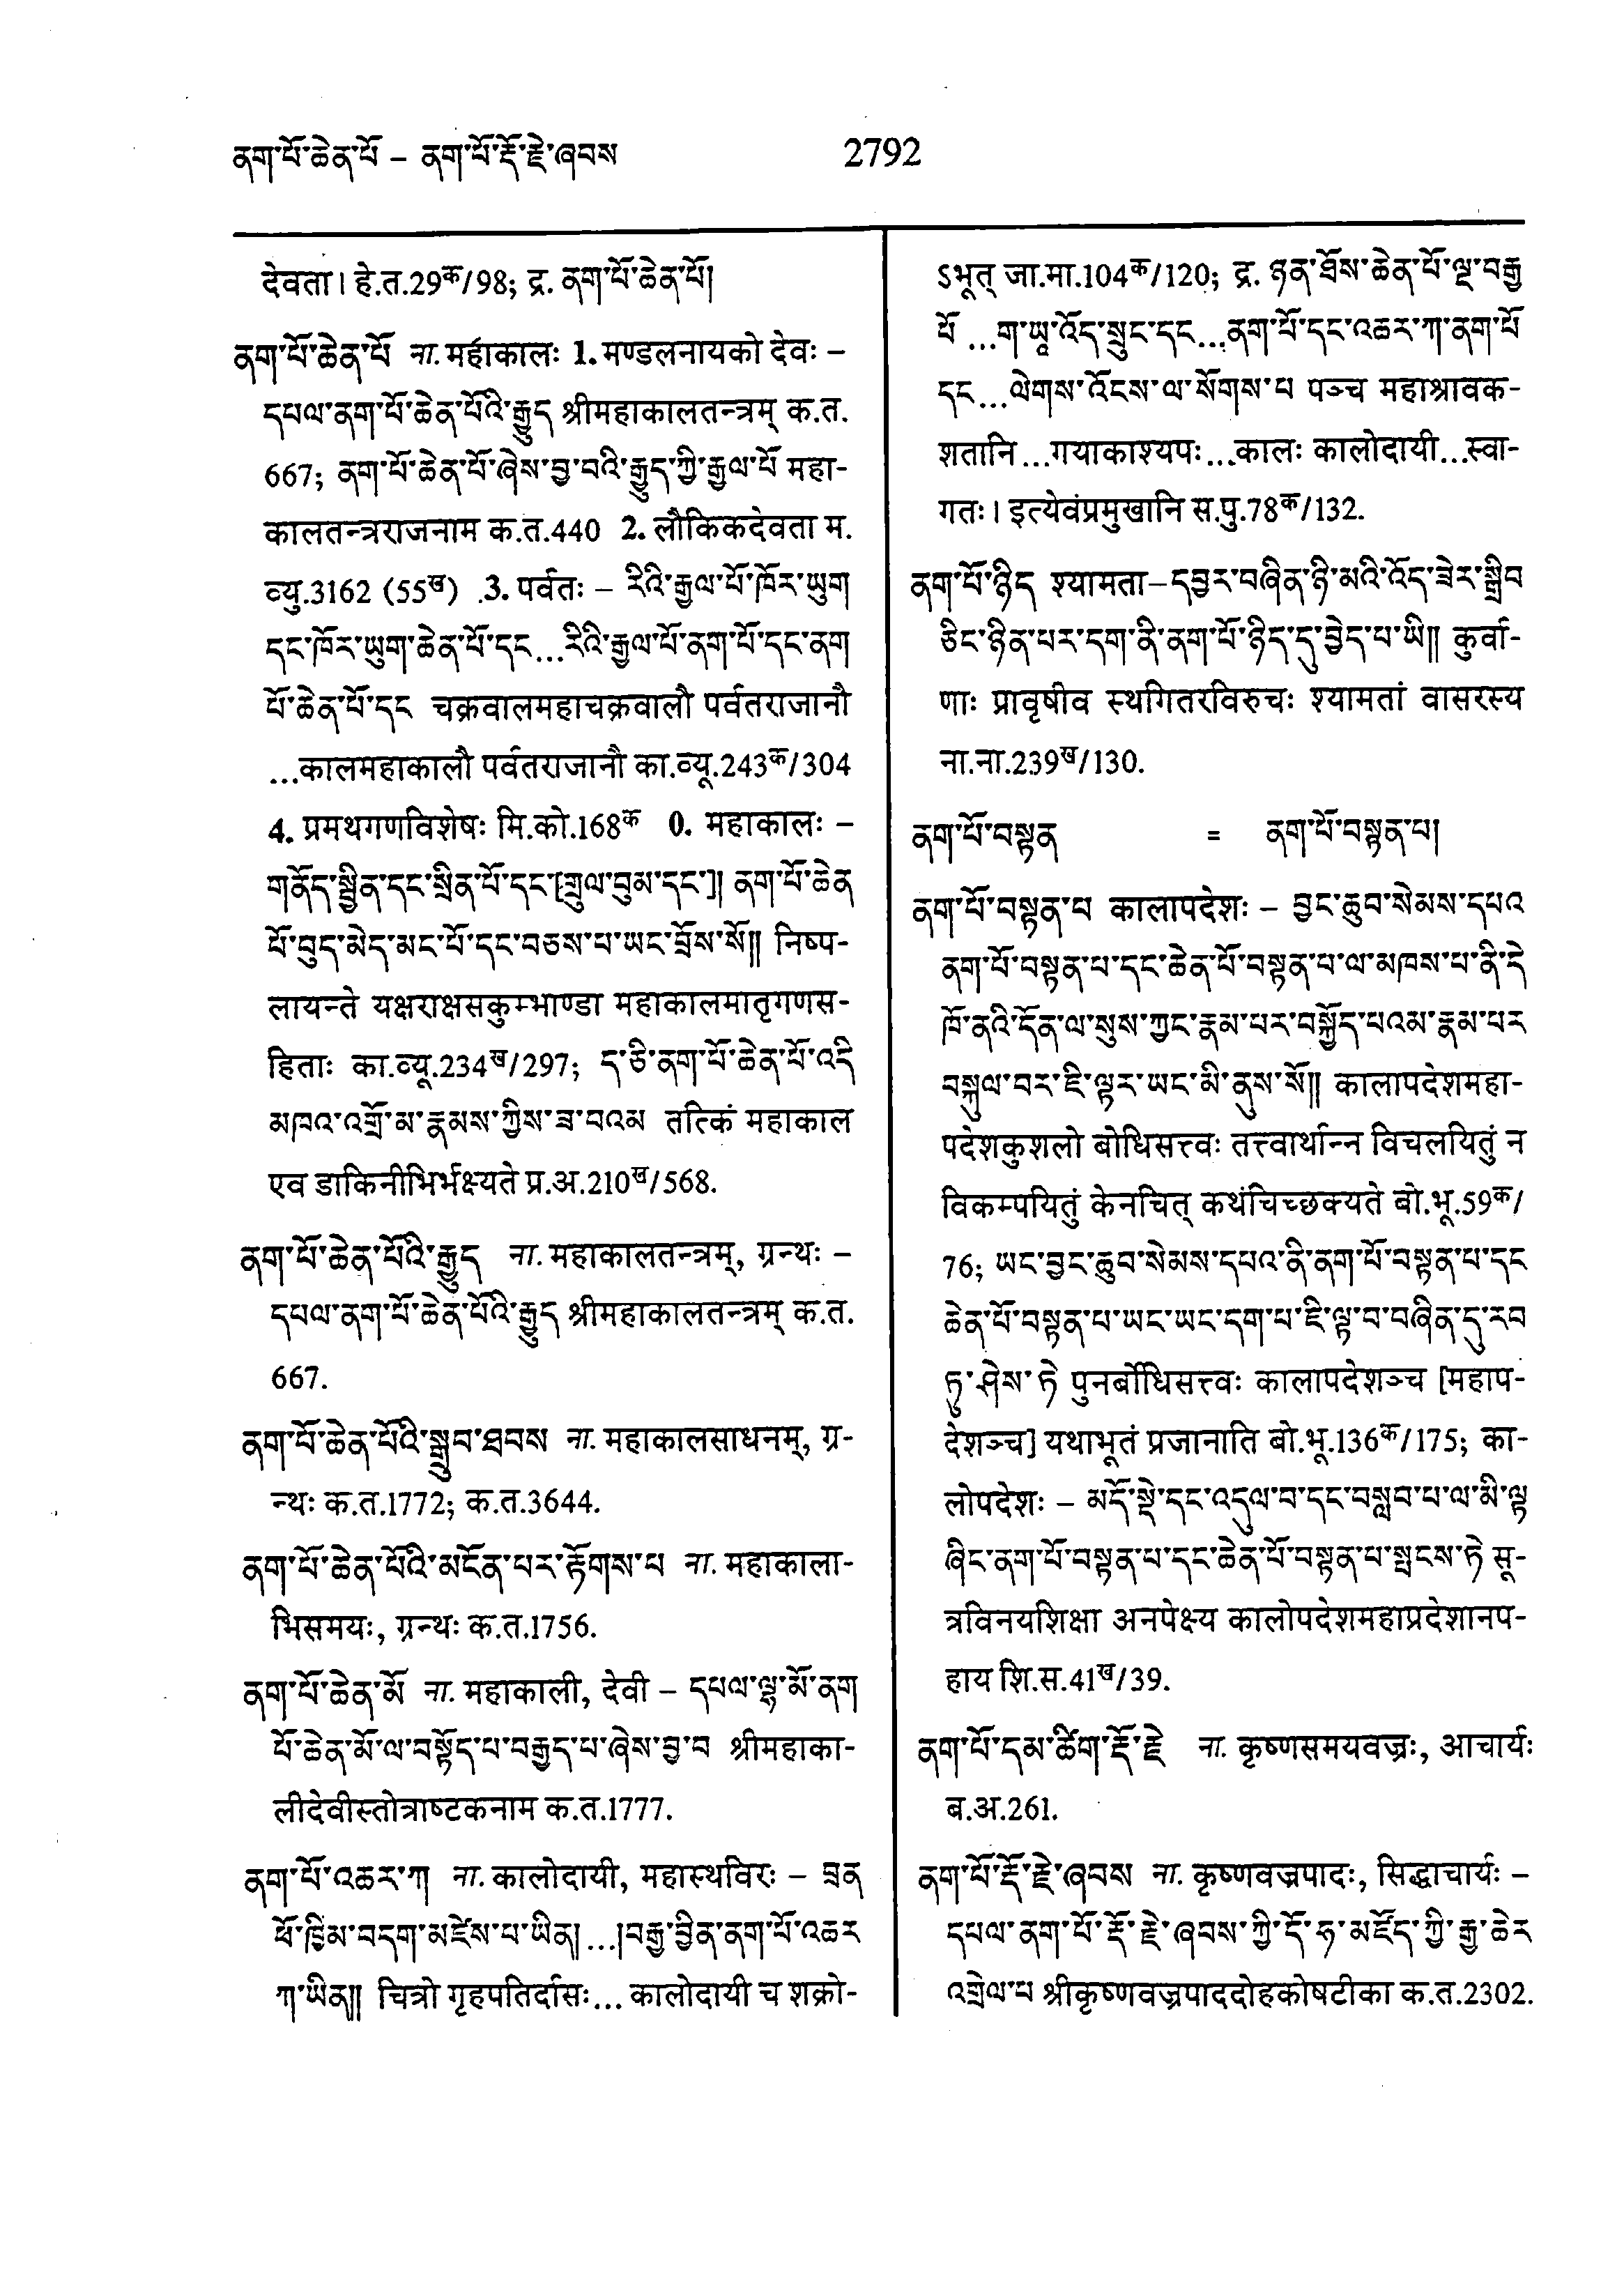 ནག་པོ་ཆེན་པོ – ནག་པོ་རྡོ་རྗེ་ཞབས
2792
देवता। हे.त.29क/98; द्र. ནག་པོ་ཆེན་པོ།
ནག་པོ་ཆེན་པོ ना. महाकालः 1. मण्डलनायको देवः –
དཔལ་ནག་པོ་ཆེན་པོའི་རྒྱུད श्रीमहाकालतन्त्रम् क.त.
667; ནག་པོ་ཆེན་པོ་ཞེས་བྱ་བའི་རྒྱུད་ཀྱི་རྒྱལ་པོ महा-
कालतन्त्रराजनाम क.त.440 2. लौकिकदेवता म.
व्यु.3162 (55ख) 3. पर्वतः – རིའི་རྒྱལ་པོ་ཁོར་ཡུག
དང་ཁོར་ཡུག་ཆེན་པོ་དང...རིའི་རྒྱལ་པོ་ནག་པོ་དང་ནག
པོ་ཆེན་པོ་དང चक्रवालमहाचक्रवालौ पर्वतराजानौ
...कालमहाकालौ पर्वतराजानौ का.व्यू.243क/304
4. प्रमथगणविशेषः मि.को.168क 0. महाकालः –
གནོད་སྦྱིན་དང་སྲིན་པོ་དང་[གྲུལ་བུམ་དང་]། ནག་པོ་ཆེན
པོ་བུད་མེད་མང་པོ་དང་བཅས་པ་ཡང་བྲོས་སོ།། निष्प-
लायन्ते यक्षराक्षसकुम्भाण्डा महाकालमातृगणस-
हिताः का.व्यू.234ख/297; ད་ཅི་ནག་པོ་ཆེན་པོ་འདི
མཁའ་འགྲོ་མ་རྣམས་ཀྱིས་ཟ་བའམ तत्किं महाकाल
एव डाकिनीभिर्भक्ष्यते प्र.अ.210ख/568.
ནག་པོ་ཆེན་པོའི་རྒྱུད ना. महाकालतन्त्रम्, ग्रन्थः –
དཔལ་ནག་པོ་ཆེན་པོའི་རྒྱུད श्रीमहाकालतन्त्रम् क.त.
667.
ནག་པོ་ཆེན་པོའི་སྒྲུབ་ཐབས ना. महाकालसाधनम्, ग्र-
न्थः क.त.1772; क.त.3644.
ནག་པོ་ཆེན་པོའི་མངོན་པར་རྟོགས་པ ना. महाकाला-
भिसमयः, ग्रन्थः क.त.1756.
ནག་པོ་ཆེན་མོ ना. महाकाली, देवी – དཔལ་ལྷ་མོ་ནག
པོ་ཆེན་མོ་ལ་བསྟོད་པ་བརྒྱད་པ་ཞེས་བྱ་བ श्रीमहाका-
लीदेवीस्तोत्राष्टकनाम क.त.1777.
ནག་པོ་འཆར་ཀ ना. कालोदायी, महास्थविरः – བྲན
ཕོ་ཁྱིམ་བདག་མཛེས་པ་ཡིན།...།བརྒྱ་བྱིན་ནག་པོ་འཆར
ཀ་ཡིན།། चित्रो गृहपतिर्दासः... कालोदायी च शक्रो-
ऽभूत् जा.मा.104क/120; द्र. ཉན་ཐོས་ཆེན་པོ་ལྔ་བརྒྱ
པོ ...ག་ཡཱ་འོད་སྲུང་དང...ནག་པོ་དང་འཆར་ཀ་ནག་པོ
དང...ལེགས་འོངས་ལ་སོགས་པ पञ्च महाश्रावक-
शतानि ...गयाकाश्यपः...कालः कालोदायी...स्वा-
गतः। इत्येवंप्रमुखानि स.पु.78क/132.
ནག་པོ་ཉིད श्यामता–དབྱར་བཞིན་ཉི་མའི་འོད་ཟེར་སྒྲིབ
ཅིང་ཉིན་པར་དག་ནི་ནག་པོ་ཉིད་དུ་བྱེད་པ་ཡི།། कुर्वा-
णाः प्रावृषीव स्थगितरविरुचः श्यामतां वासरस्य
ना.ना.239ख/130.
ནག་པོ་བསྟན = ནག་པོ་བསྟན་པ།
ནག་པོ་བསྟན་པ कालापदेशः – བྱང་ཆུབ་སེམས་དཔའ
ནག་པོ་བསྟན་པ་དང་ཆེན་པོ་བསྟན་པ་ལ་མཁས་པ་ནི་དེ
ཁོ་ནའི་དོན་ལ་སུས་ཀྱང་རྣམ་པར་བསྐྱོད་པའམ་རྣམ་པར
བསྐུལ་བར་ཇི་ལྟར་ཡང་མི་ནུས་སོ།། कालापदेशमहा-
पदेशकुशलो बोधिसत्त्वः तत्त्वार्थान्न विचलयितुं न
विकम्पयितुं केनचित् कथंचिच्छक्यते बो.भू.59क/
76; ཡང་བྱང་ཆུབ་སེམས་དཔའ་ནི་ནག་པོ་བསྟན་པ་དང
ཆེན་པོ་བསྟན་པ་ཡང་ཡང་དག་པ་ཇི་ལྟ་བ་བཞིན་དུ་རབ
ཏུ་ཤེས་ཏེ पुनर्बोधिसत्त्वः कालापदेशञ्च [महाप-
देशञ्च] यथाभूतं प्रजानाति बो.भू.136क/175; का-
लोपदेशः – མདོ་སྡེ་དང་འདུལ་བ་དང་བསླབ་པ་ལ་མི་ལྟ
ཞིང་ནག་པོ་བསྟན་པ་དང་ཆེན་པོ་བསྟན་པ་སྤངས་ཏེ सू-
त्रविनयशिक्षा अनपेक्ष्य कालोपदेशमहाप्रदेशानप-
हाय शि.स.41ख/39.
ནག་པོ་དམ་ཚིག་རྡོ་རྗེ ना. कृष्णसमयवज्रः, आचार्यः
ब.अ.261.
ནག་པོ་རྡོ་རྗེ་ཞབས ना. कृष्णवज्रपादः, सिद्धाचार्यः –
དཔལ་ནག་པོ་རྡོ་རྗེ་ཞབས་ཀྱི་དོ་ཧ་མཛོད་ཀྱི་རྒྱ་ཆེར
འགྲེལ་པ श्रीकृष्णवज्रपाददोहकोषटीका क.त.2302.